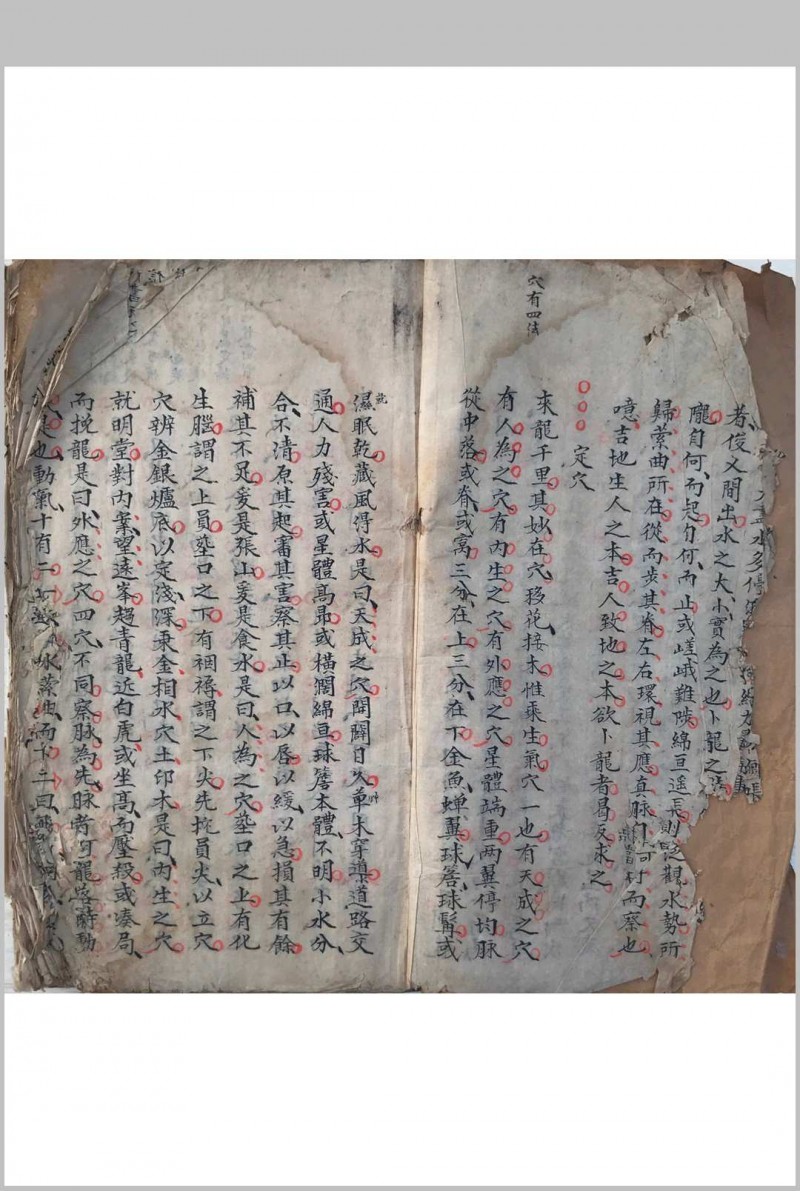 水多停
者俊又間出水之大小實為之也卜龍之法
隴自何而起自何而止或嵯峨難陟綿亘遥長則泛觀水勢所
歸縈曲所在從而步其脊左右環視其應真脉自可得而察也
噫吉地生人之本吉人致地之本欲卜龍者曷反求之
定穴
穴有四法
來龍千里其妙在穴移花接木惟乘生氣穴一也有天成之穴
有人為之穴有内生之穴有外應之穴星體端重两翼停均脉
從中落或脊或窩三分在上三分在下金魚蝉翼球簷球髯或
濕眠乾藏風得水是曰天成之穴開闢日久草木穿鑿道路交
通人力殘害或星體高昻或橫濶綿亘球簷本體不明小水分
合不清原其起審其害察其止以口以唇以緩以急損其有餘
補其不足爰是張山爰是食水是曰人為之穴塋口之上有化
生腦謂之上員塋口之下有裀褥謂之下尖先挓員尖以立穴
穴辨金銀爐底以定淺深乘金相水穴土印木是曰内生之穴
就明堂對内案望遠峯趨青龍近白虎或坐高而壓殺或凑局
而挽龍是曰外應之穴四穴不同察脉為先脉者何龍落時動
是也動氣十有二